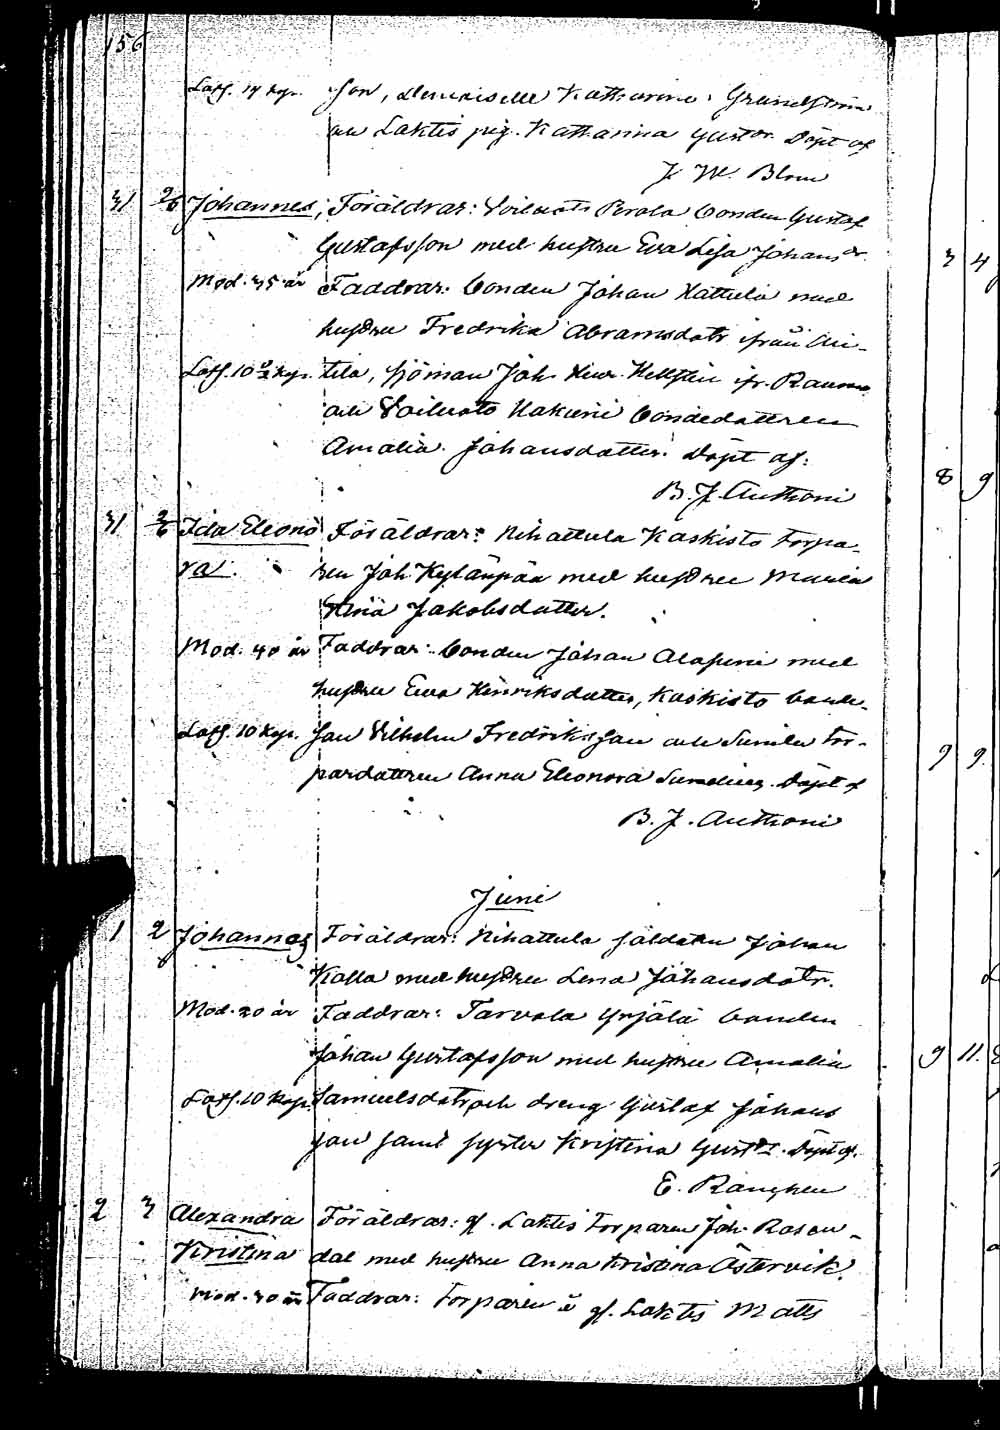 156
son, demoiselle Katharina Grundström
och Laktis pig. Katharina Gust.dr. Döpt af
J. W. Blom
31 2/6 Johannes, Föräldrar: Voiluoto Perala bonden Gustaf
Gustafsson med hustru Eva Lisa Johans dr.
Mod. 35 år Faddrar: bonden Johan Hattula med
hustru Fredrika Abramsdotr ifrån An-
tila, sjöman Joh. Henr. Hellsten ifr. Raumo
och Voiluoto Hakuni bondedottren
Amalia Johansdotter. Döpt af:
B. J. Anthoni
31 2/6 Ida Eleono Föräldrar: Nihattula Kaskisto torpa-
ra. ren Joh. Kylänpää med hustru Maria
Stina Jakobsdotter.
Mod. 40 år Faddrar: bonden Johan Alasuni med
hustru Eva Henriksdotter, Kaskisto bonde-
son Vilhelm Fredriksson och Sunila tor-
pardottren Anna Eleonora Sundberg. Döpt af
B. J. Anthoni
Juni
1 2 Johannes Föräldrar: Nihattula soldaten Johan
Kalla med hustru Lena Johansdotr.
Mod. 20 år Faddrar: Tarvola Yrjälä bonden
Johan Gustafsson med hustru Amalia
Samuelsdotr och dreng Gustaf Johans
son samt syster Kristina Gustdr. Döpt af.
E. Ranchen
2 3 Alexandra Föräldrar: gl. Laktis torparen Joh. Rosen-
Kristina dal med hustru Anna Kristina Östervik.
Mod. 30 år Faddrar: Torparen å gl. Laktis Matts
3 4
8 9
9 9.
9 11.